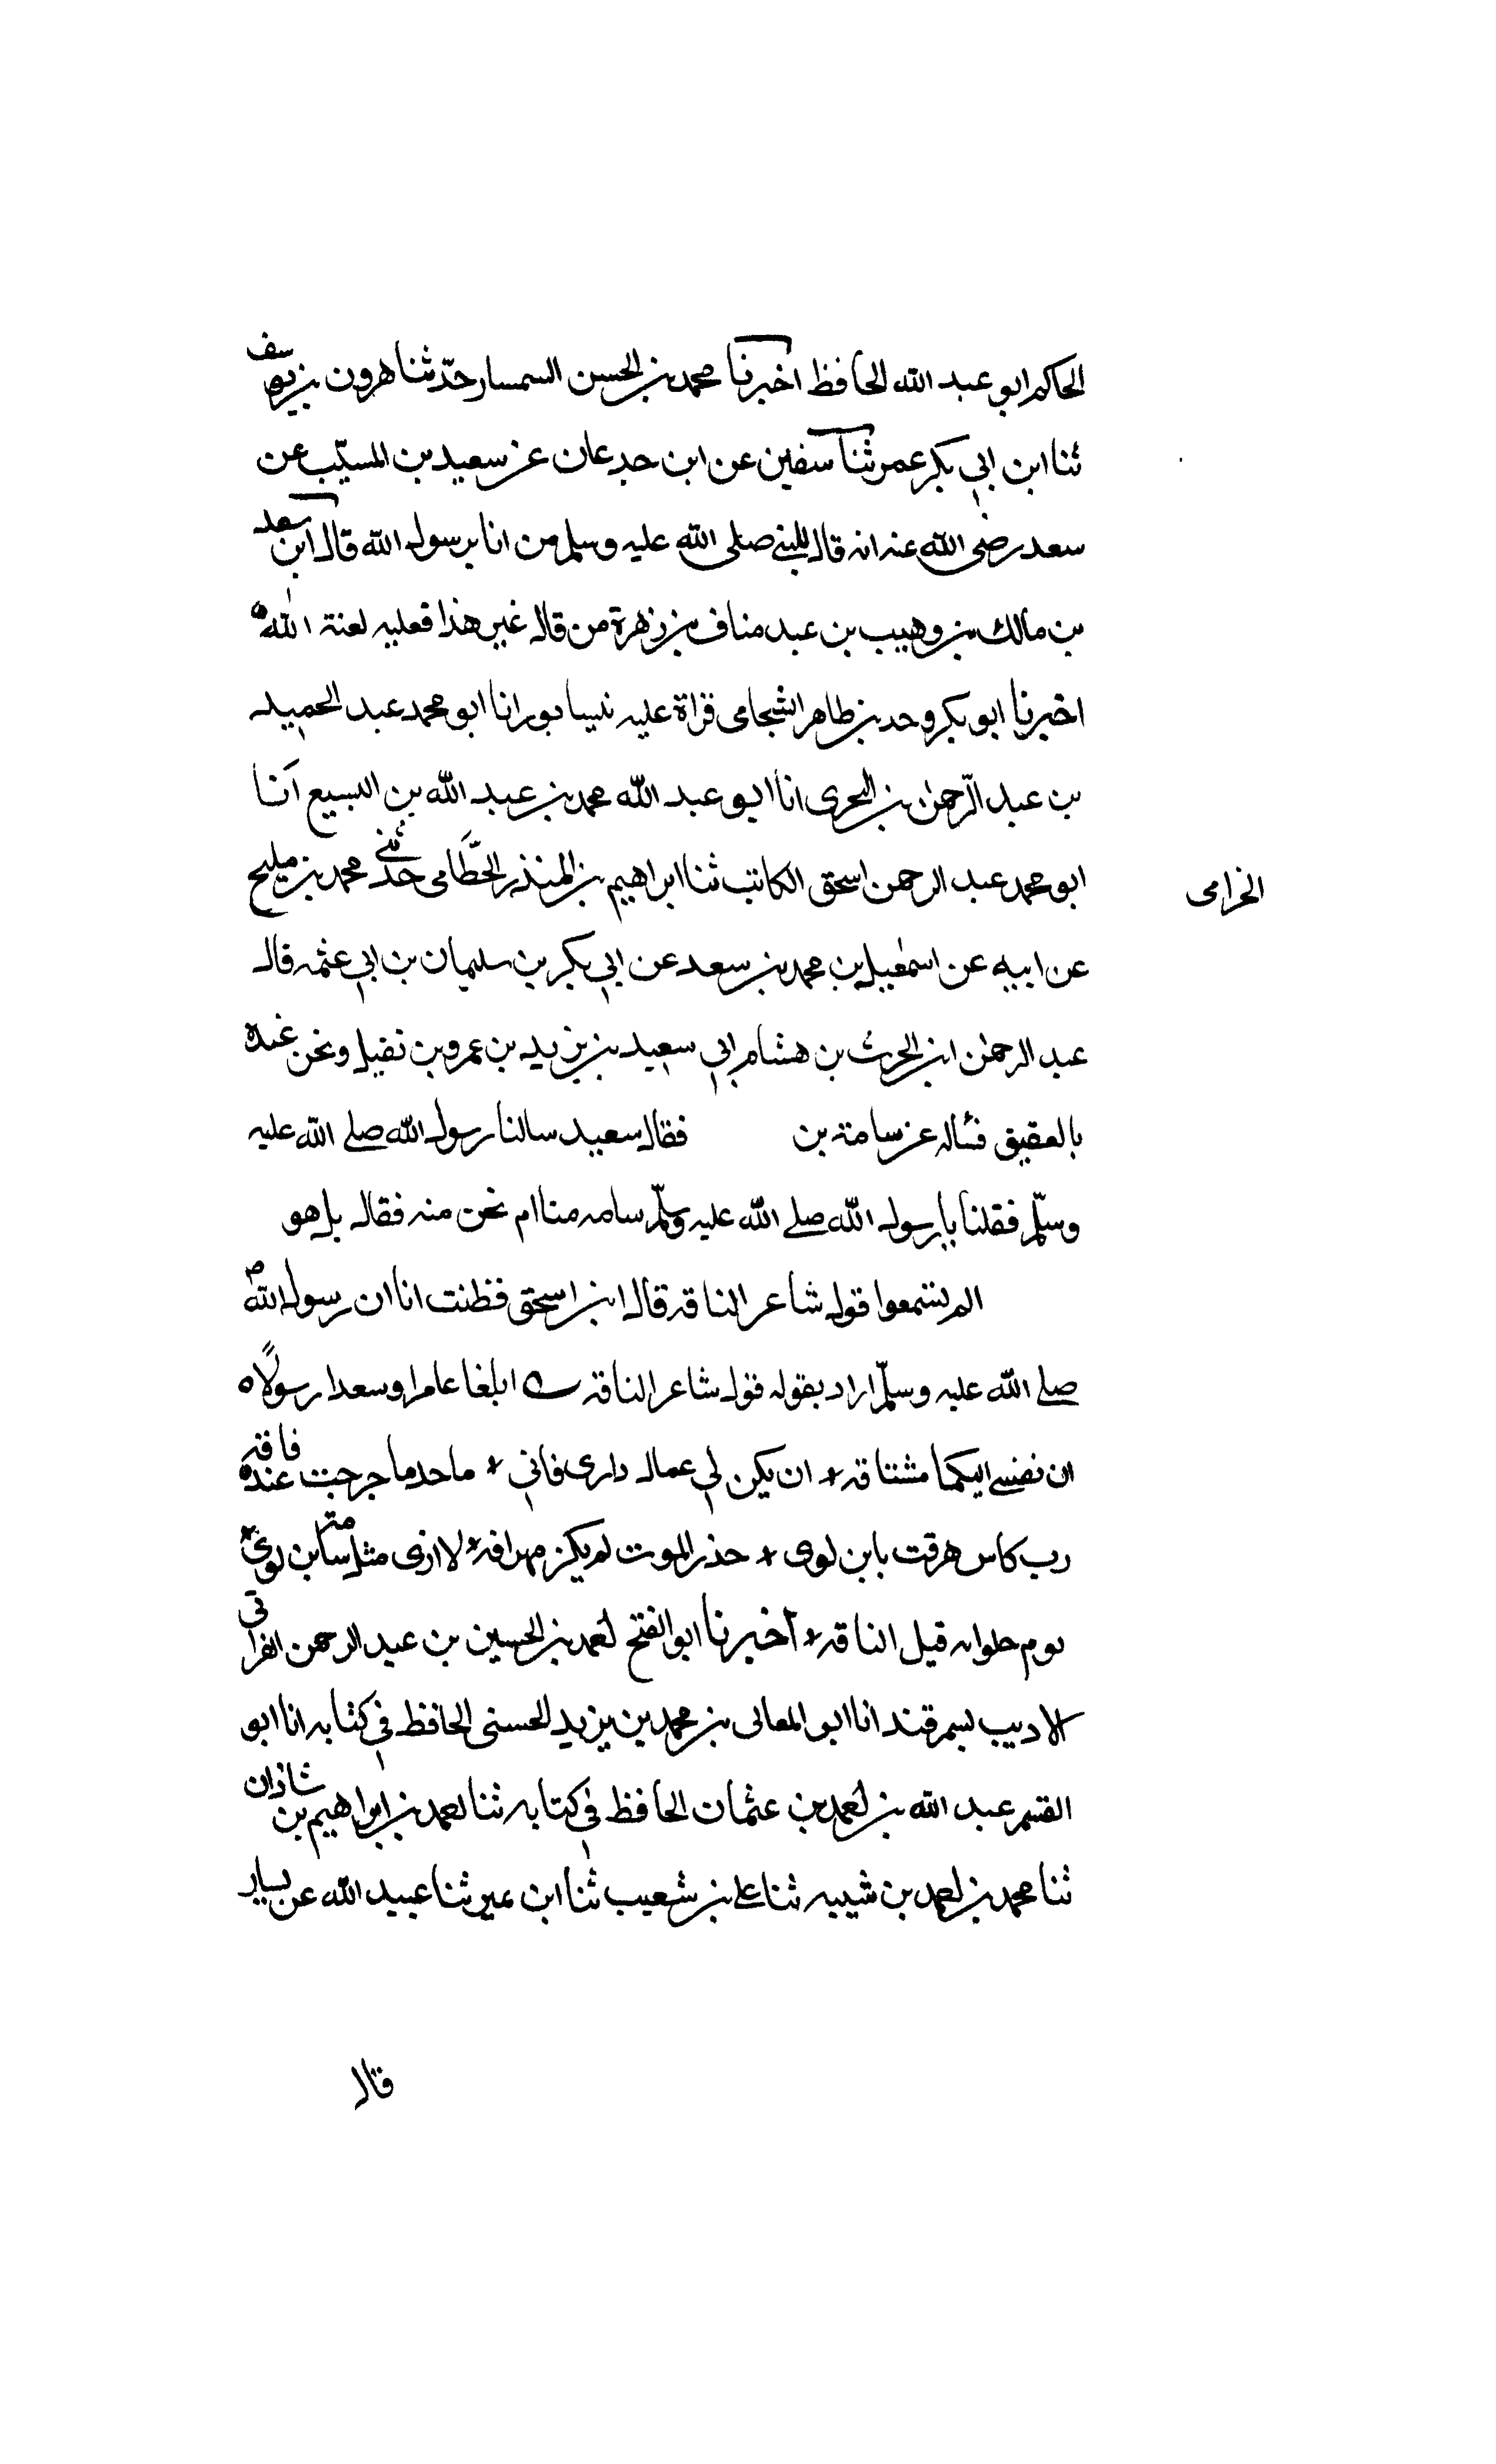 الحاكم ابو عبد الله الحافظ اخبرنا محمد بن الحسن السمسار حدّثنا هرون بن يوسف
ثنا ابن ابي بكر عمر ثنا سفين عن ابن جدعان عن سعيد بن المسيّب عن
سعد رضي الله عنه انه قال للنبي صلى الله عليه وسلم من انا يرسول الله قال ابن سعد
بن مالك بن وهيب بن عبد مناف بن زهرة من قال غير هذا فعليه لعنة الله ه
اخبرنا ابو بكر وحد بن طاهر الشجامى قراة عليه نيسابور انا ابو محمد عبد الحميد
بن عبد الرّحمٰن بن البحرى انا ابو عبد الله محمد بن عبد الله بن البسيع انا
ابو محمد عبد الرحمن اسحق الكاتب ثنا ابراهيم بن المنذر الحطّامى حدثني محمد بن مليح
الخرامى
عن ابيه عن اسمٰعيل بن محمد بن سعد عن ابي بكر بن سليمان بن ابي عثمه قال
عبد الرحمٰن ابن الحرث بن هشام ابي سعيد بن يزيد بن عمرو بن نفيل ونحن عنده
بالعقيق فسٔاله عن سامة بن فقال سعيد سالنا رسول الله صلے الله عليه
وسلّم فقلنا يا رسول الله صلے الله عليه وسلّم سامه منا ام نحن منه فقال بل هو
الم تسمعوا قول شاعر الناقه قال ابن اسحق فظنت انا ان رسول الله ص
صلے الله عليه وسلّم اراد بقوله قول شاعر الناقه ابلغا عامرا وسعدا رسولًا ه
ان نفسے اليكما مشتاقه * ان يكن لي عمال دارى فاني * ماجد ما خرجت عنده فاقه
رب كاس هرقت يا بن لوى * حذر الموت لم يكن مهراقه * لا ارى مثل سامة بن لوي *
يوم حلوا به قيل الناقه * اخبرنا ابو الفتح احمد بن الحسين بن عبد الرحمن الفراتى
الاديب بسمرقند انا ابو المعالى بن محمد بن يزيد الحسنى الحافظ في كتابه انا ابو
القسم عبد الله بن احمد بن عثمان الحافظ في كتابه ثنا احمد بن ابراهيم بن شاذان
ثنا محمد بن احمد بن شيبه ثنا علے بن شعيب ثنا ابن نمير ثنا عبيد الله عن يسار
قال